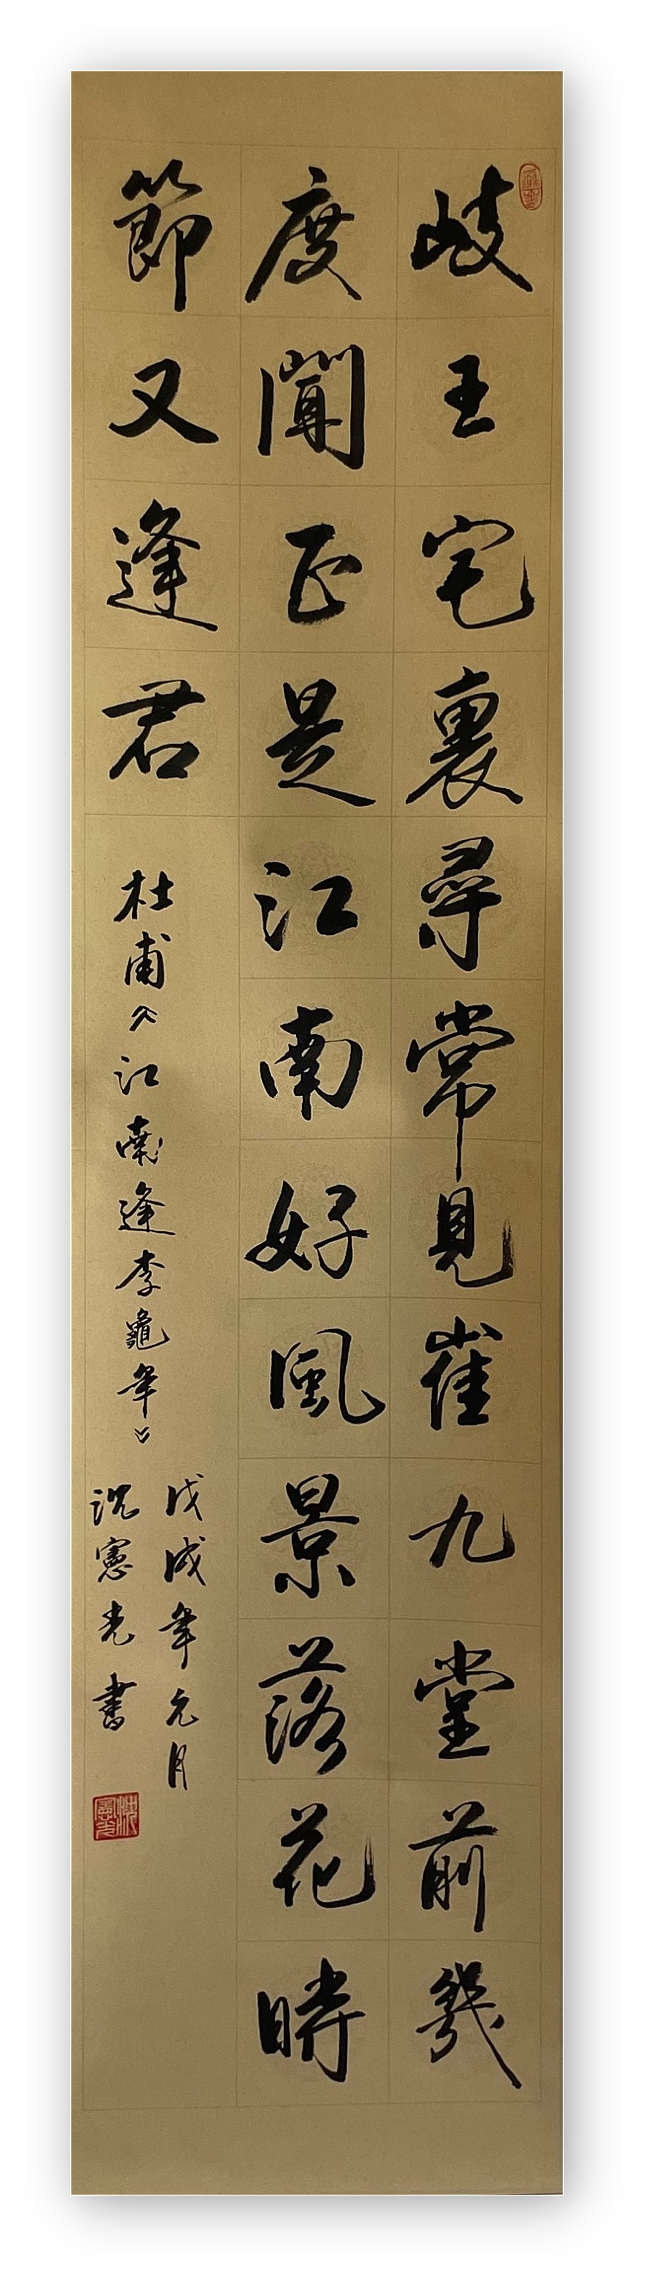 岐王宅裏尋常見崔九堂前幾
度聞正是江南好風景落花時
節又逢君
杜甫《江南逢李龜年》
戊戌年元月
沈憲光書
沈憲光